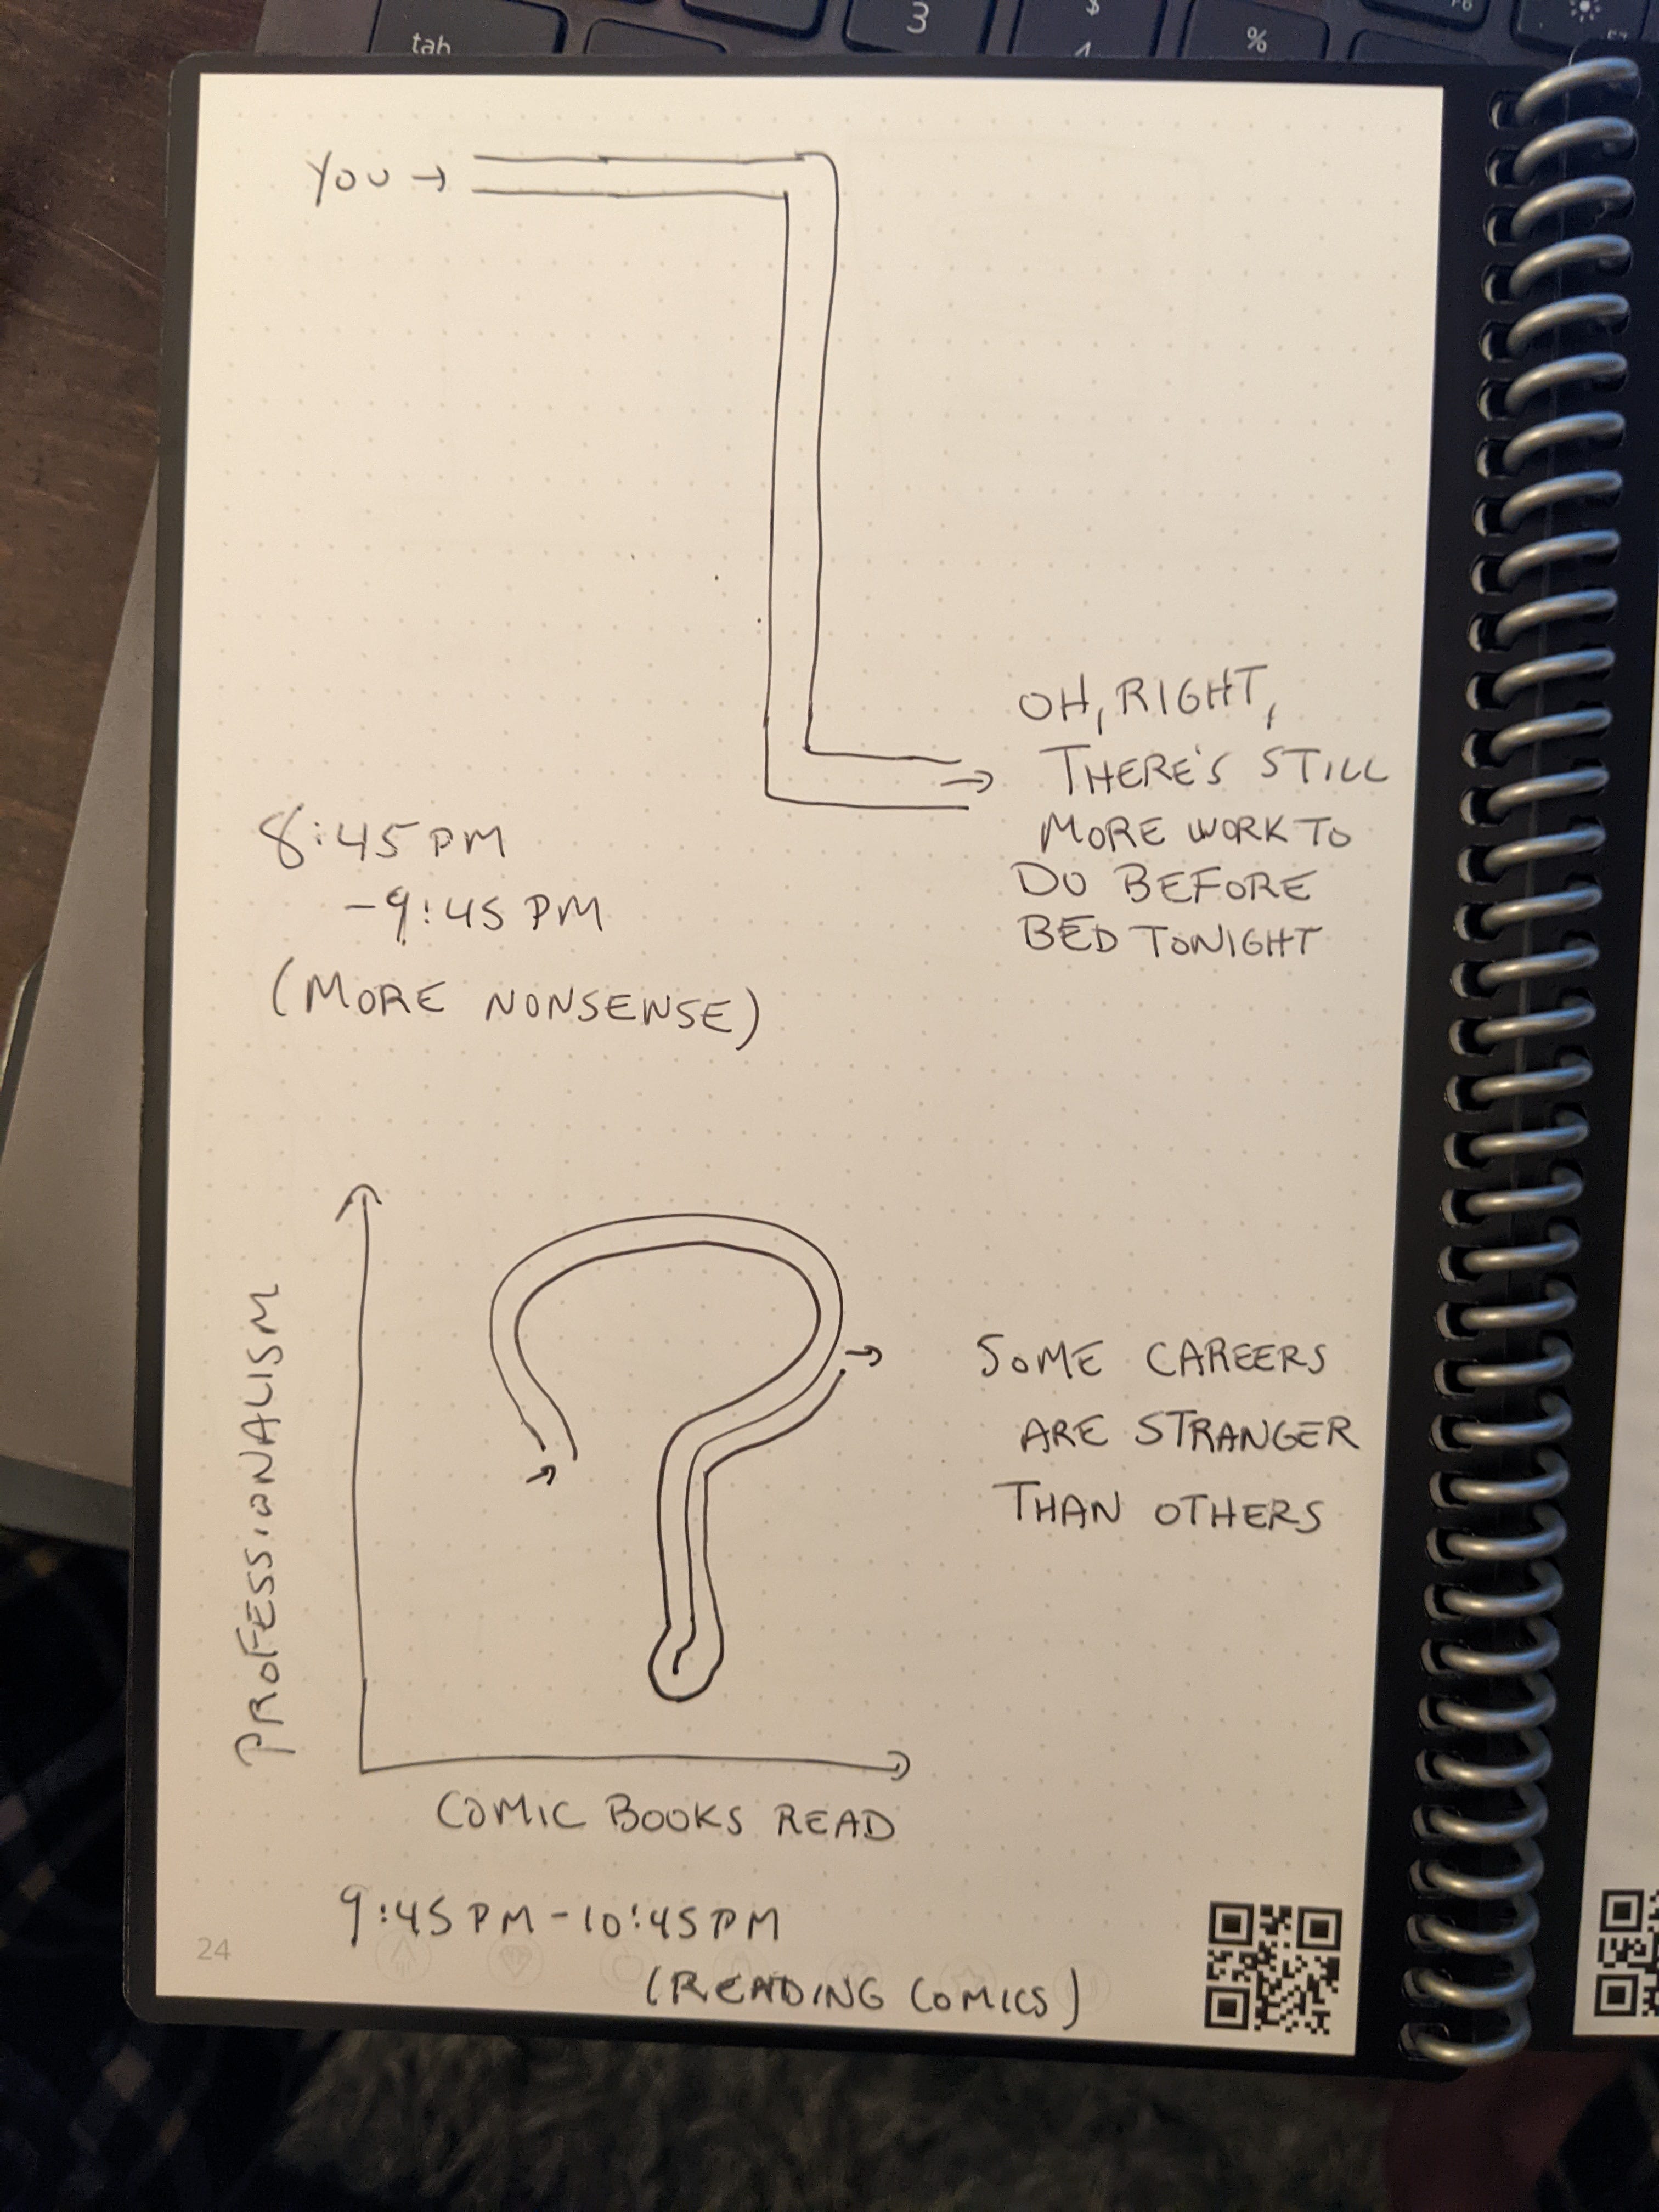 tab
3
$
4
%
F6
F7
YOU →
OH, RIGHT,
THERE'S STILL
MORE WORK TO
DO BEFORE
BED TONIGHT
8:45 PM
-9:45 PM
(MORE NONSENSE)
PROFESSIONALISM
SOME CAREERS
ARE STRANGER
THAN OTHERS
COMIC BOOKS READ
9:45 PM - 10:45 PM
(READING COMICS)
24